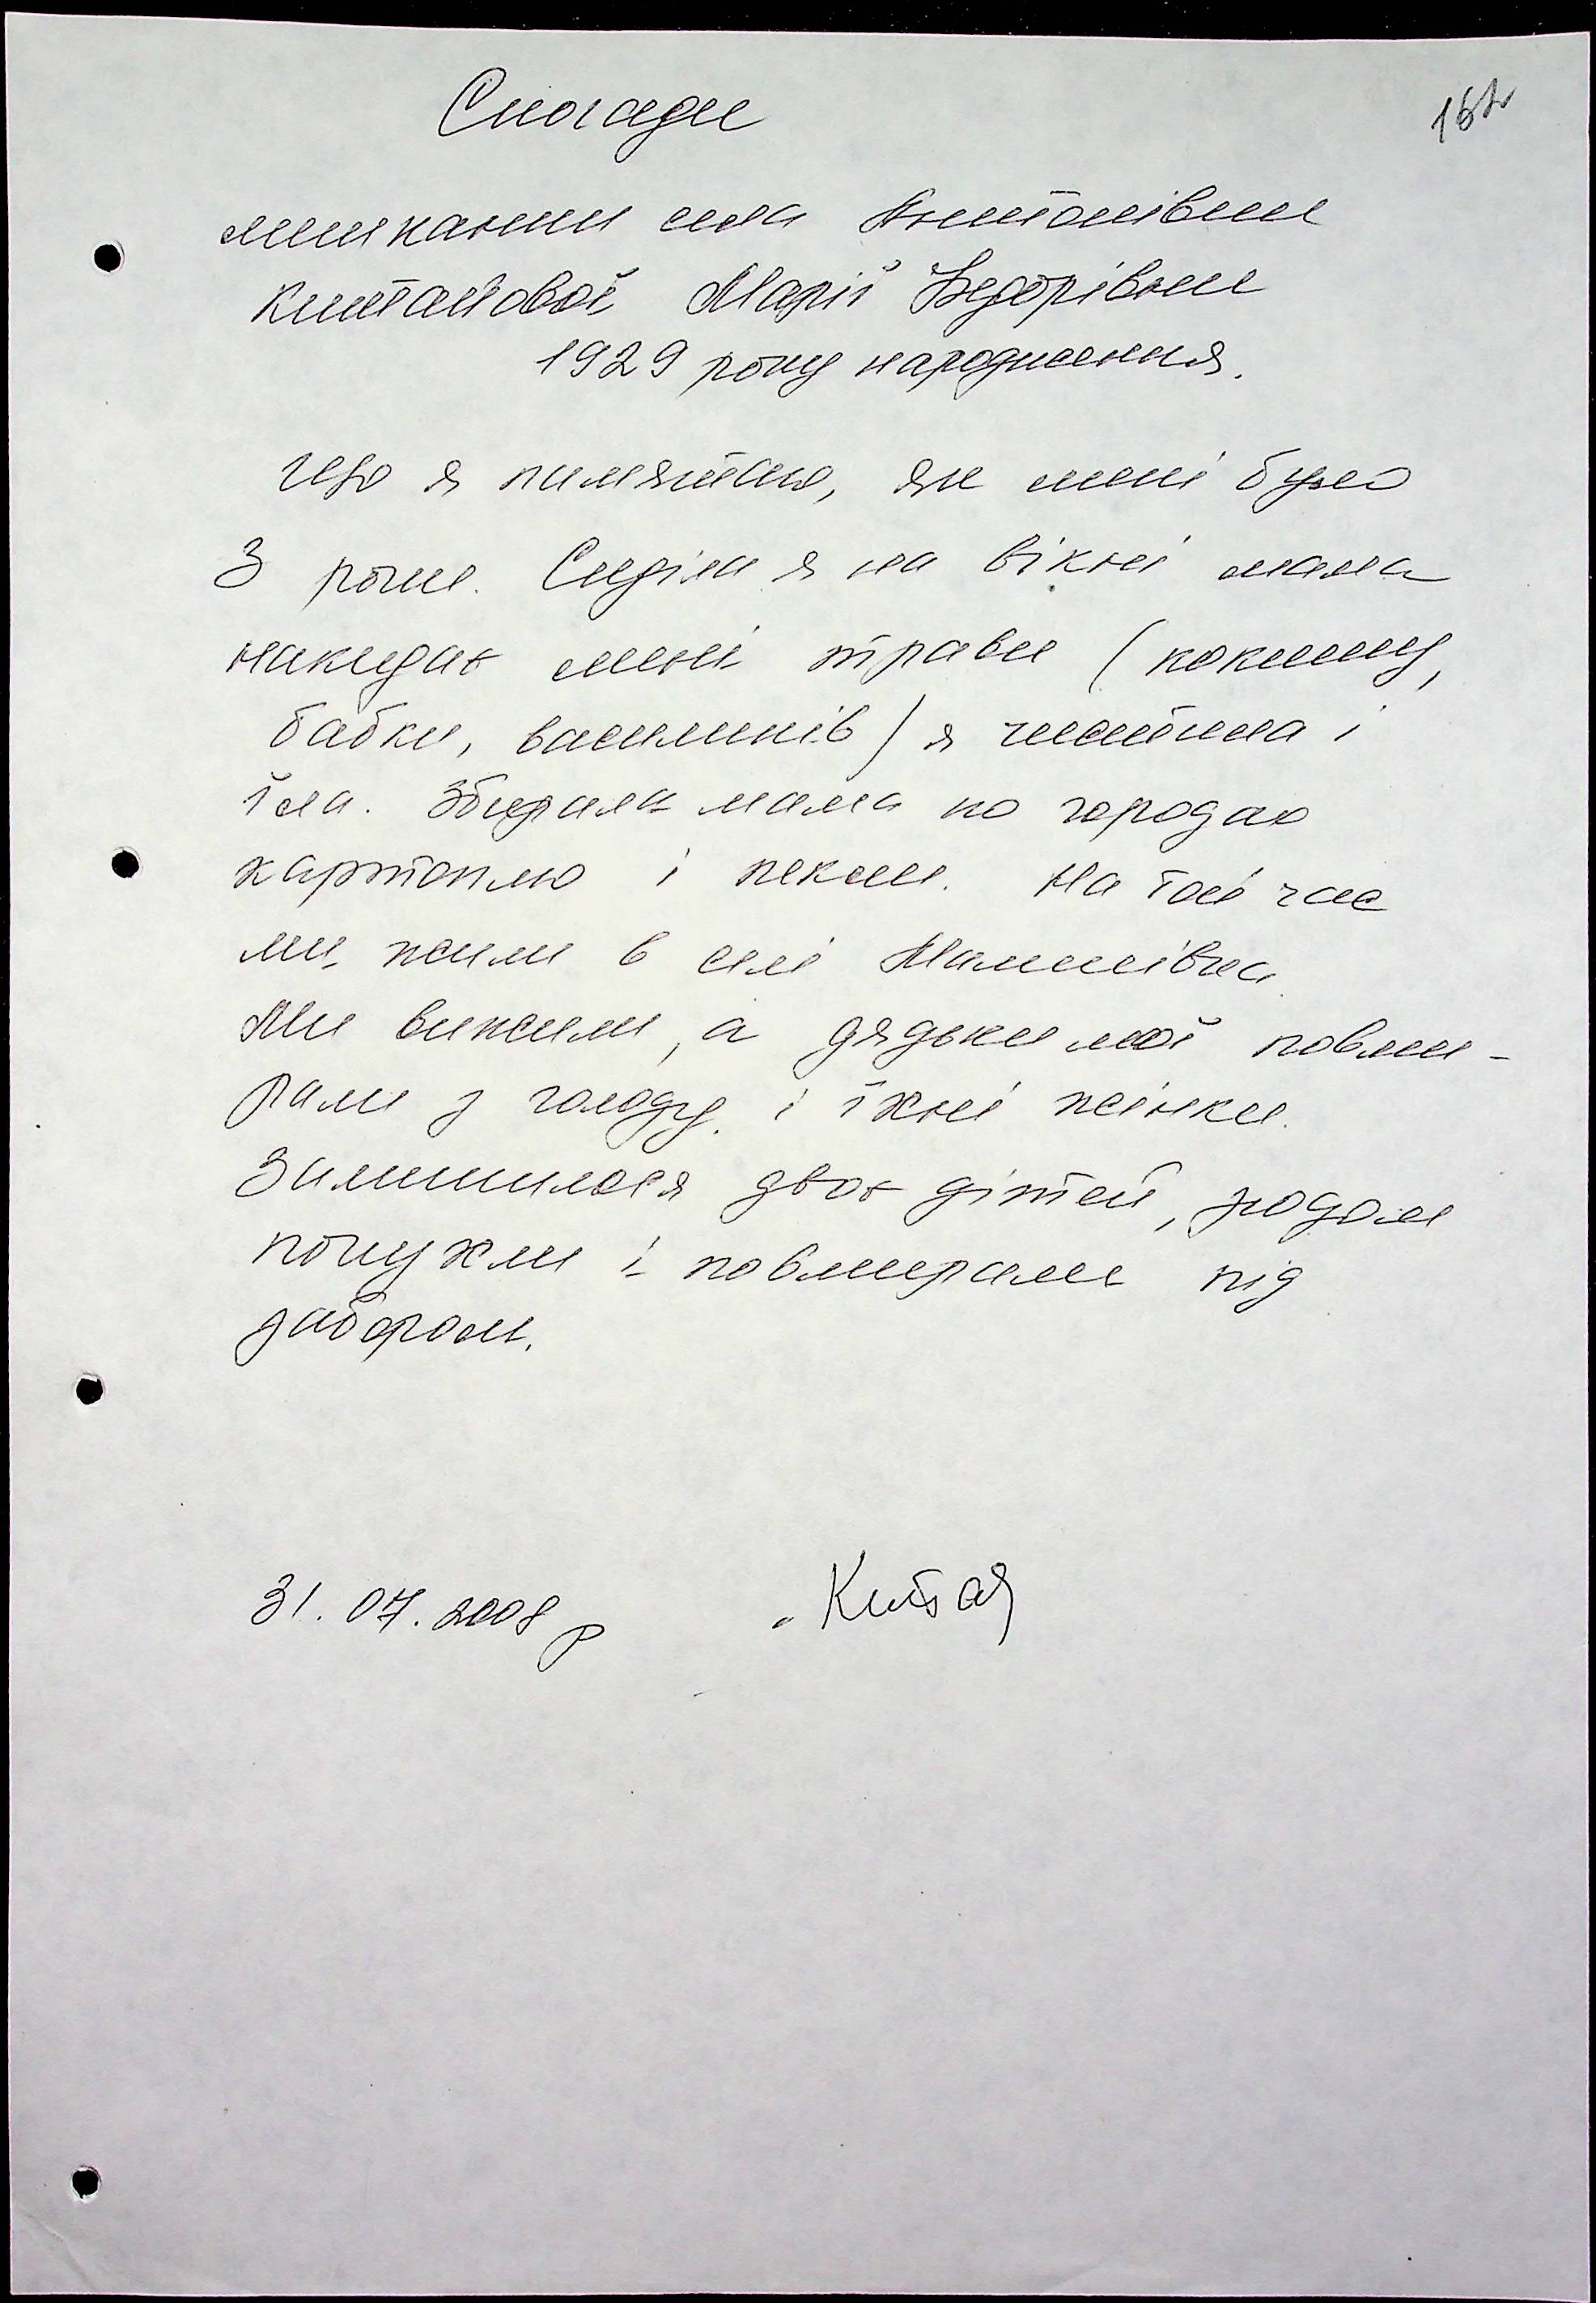 Спогади
мешканки села Антонівки
Китайової Марії Федорівни
1929 року народження.
Що я памятаю, як мені було
3 роки. Сиділа я на вікні мама
накидає мені трави (кокишу,
бабки, василиків) я чистила і
їла. Збирала мама по городах
картоплю і пекли. На той час
ми жили в селі
Ми вижили, а дядьки мої повми-
рали з голоду. і їхні жінки.
Залишилося двоє дітей, згодом
попухли і повмирали під
забором.
31.07.2008 р